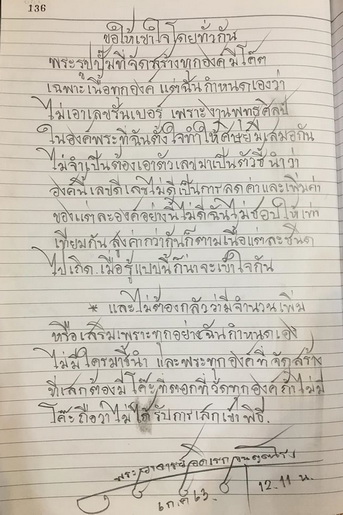 136
ขอให้เข้าใจโดยทั่วกัน
พระรูปปั๊มที่จัดสร้างทุกองค์มีโค๊ต
เฉพาะเนื้อทุกองค์ แต่ฉันกำหนดเองว่า
ไม่เอาเลขรันเบอร์ เพราะงานพุทธศิลป์
ในองค์พระที่ฉันตั้งใจทำให้ศิษย์มีเสมอกัน
ไม่จำเป็นต้องเอาตัวเลขมาเป็นตัวชี้นำว่า
องค์นี้เลขดีเลขไม่ดีเป็นการลดค่าและเพิ่มค่า
ของแต่ละองค์อย่างนี้ไม่ดีฉันไม่ชอบให้เท่า
เทียมกัน สูงค่ากว่ากันก็ตามเนื้อแต่ละชนิด
ไปเถิด เมื่อรู้แบบนี้ก็น่าจะเข้าใจกัน
* และไม่ต้องกลัวว่ามีจำนวนเพิ่ม
หรือเสริมเพราะทุกอย่างฉันกำหนดเอง
ไม่มีใครมาชี้นำ และพระทุกองค์ที่จัดสร้าง
ที่เสกต้องมีโค๊ะที่ตอกที่จัดทุกองค์ถ้าไม่มี
โค๊ะถือว่าไม่ได้รับการเสกเข้าพิธี.
พระอาจารย์
๖ ก.ค ๖๓.
12.11 น.